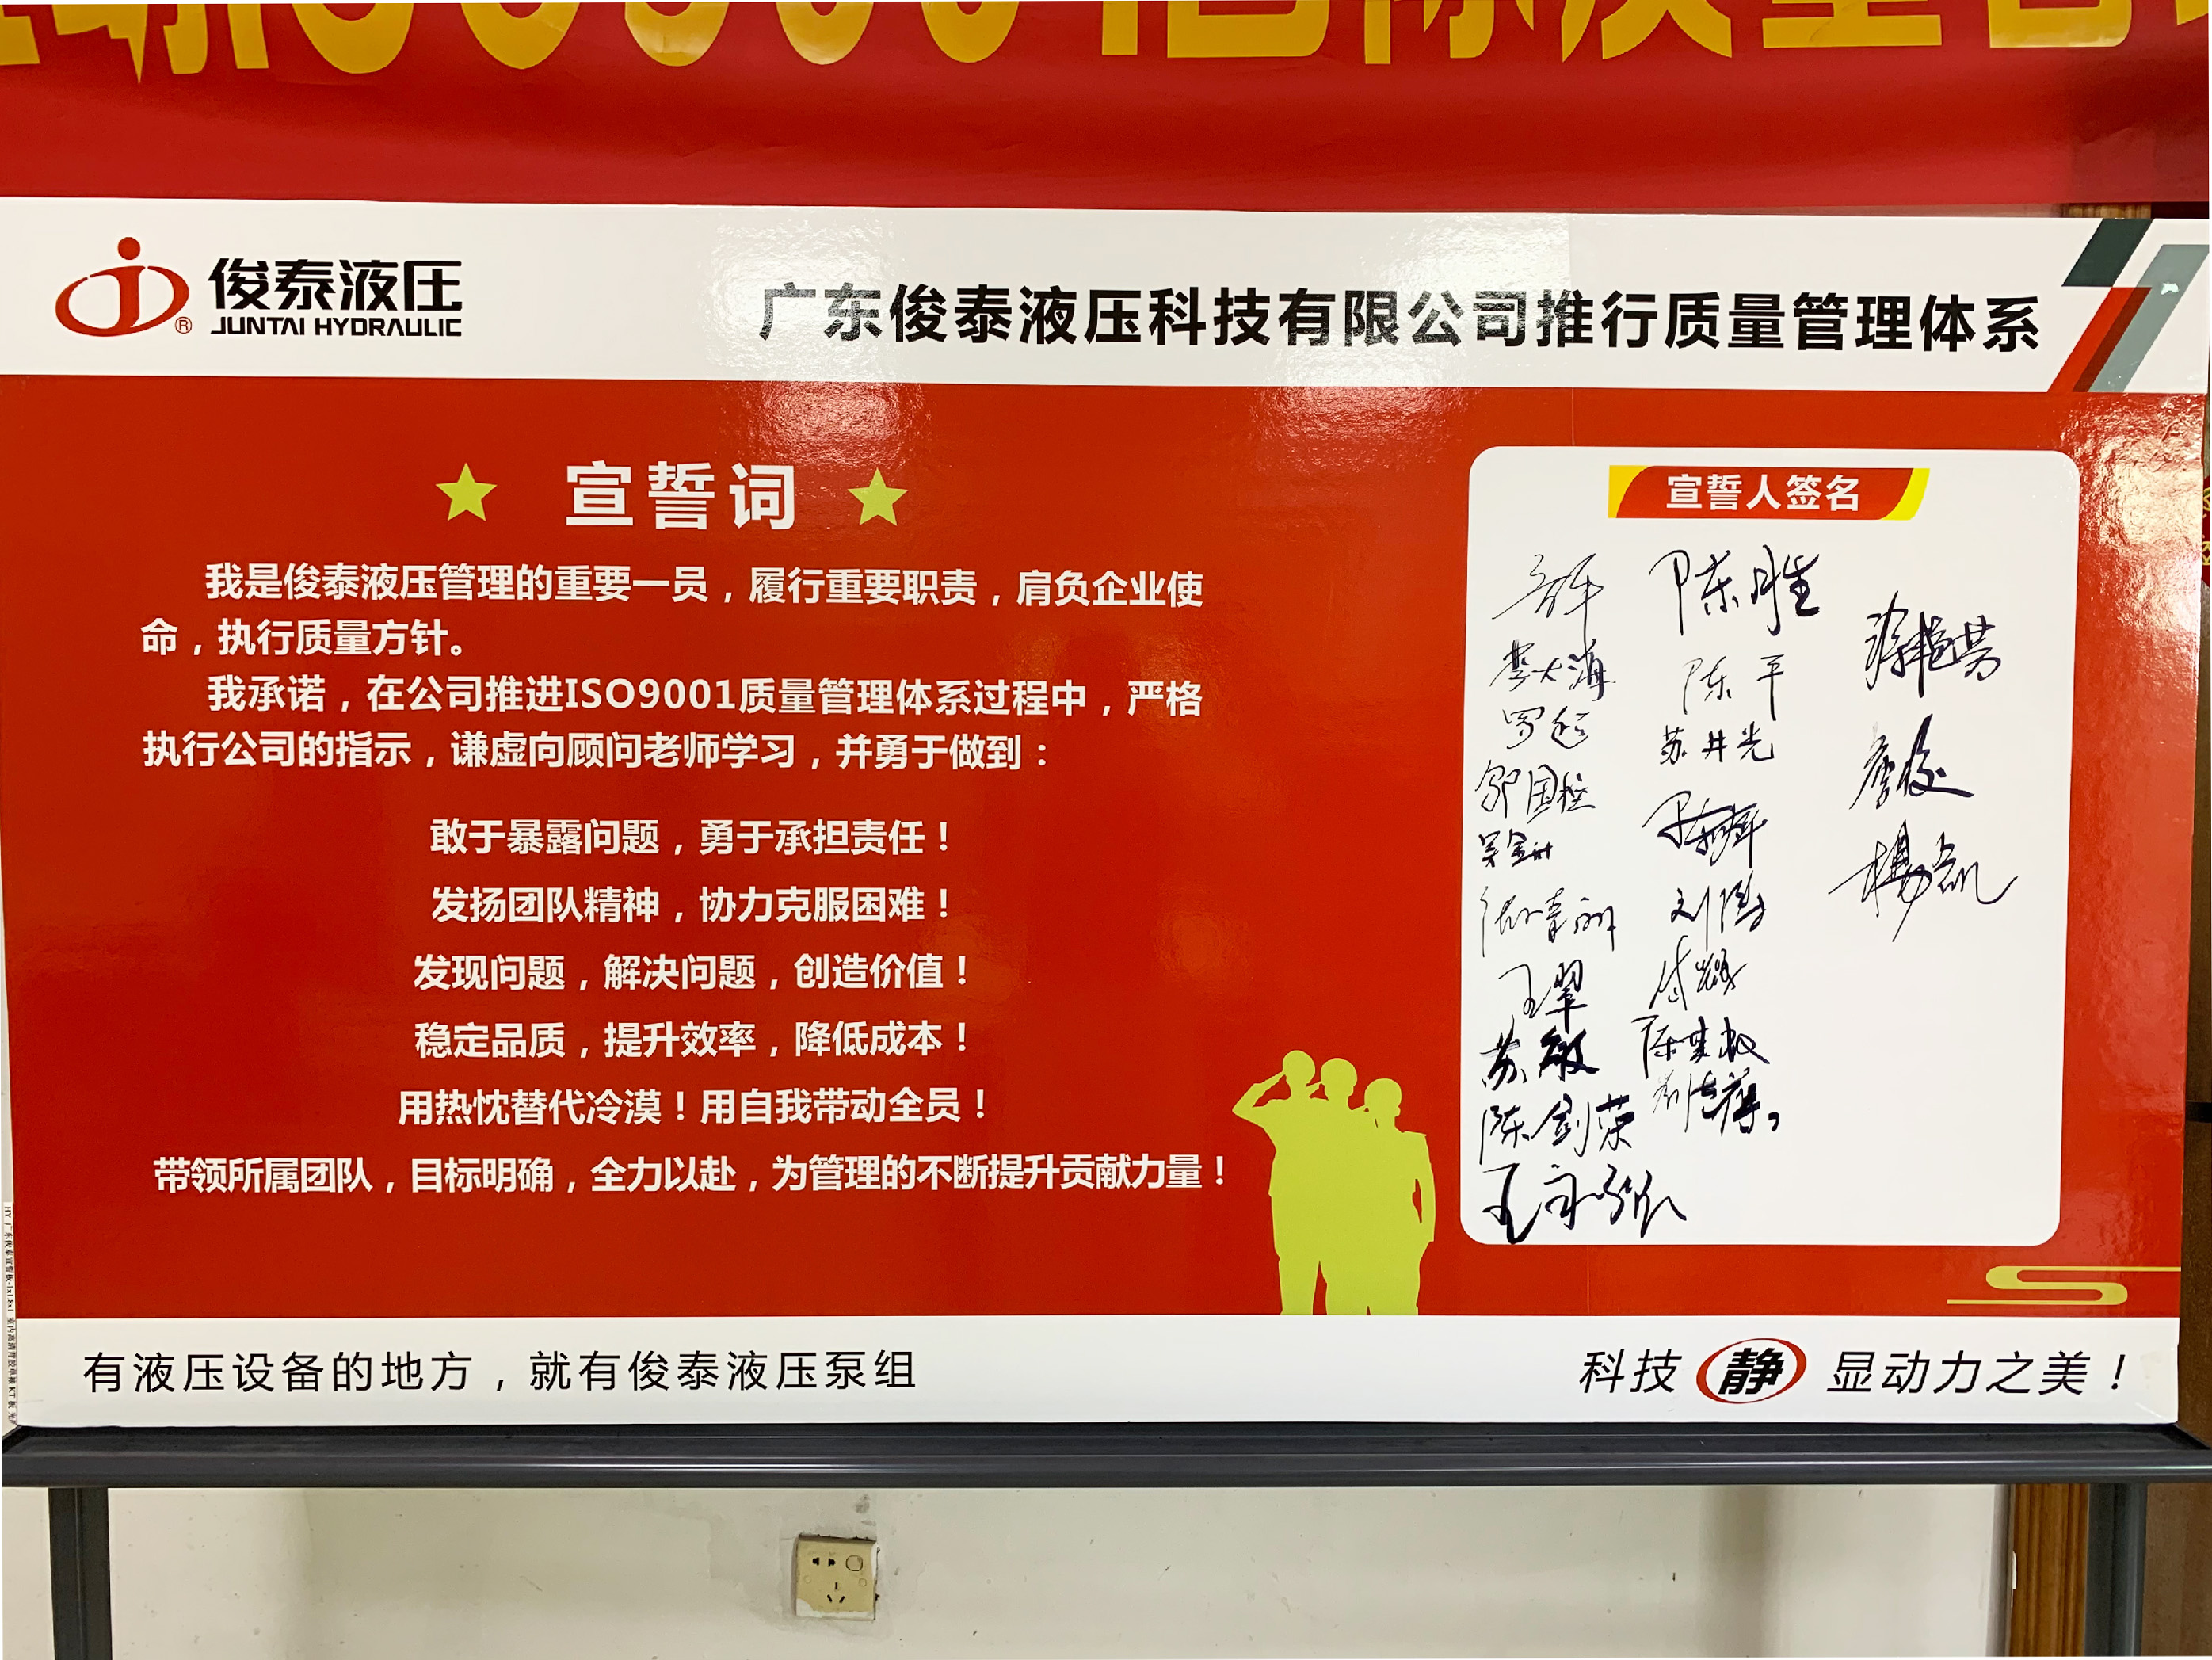 俊泰液压
JUNTAI HYDRAULIC
®
广东俊泰液压科技有限公司推行质量管理体系
宣誓词
我是俊泰液压管理的重要一员，履行重要职责，肩负企业使
命，执行质量方针。
我承诺，在公司推进ISO9001质量管理体系过程中，严格
执行公司的指示，谦虚向顾问老师学习，并勇于做到：
敢于暴露问题，勇于承担责任！
发扬团队精神，协力克服困难！
发现问题，解决问题，创造价值！
稳定品质，提升效率，降低成本！
用热忱替代冷漠！用自我带动全员！
带领所属团队，目标明确，全力以赴，为管理的不断提升贡献力量！
宣誓人签名
李大海
王翠
苏敏
陈剑荣
陈胜
陈平
苏井光
詹俊
杨凯
有液压设备的地方，就有俊泰液压泵组
科技 静 显动力之美！